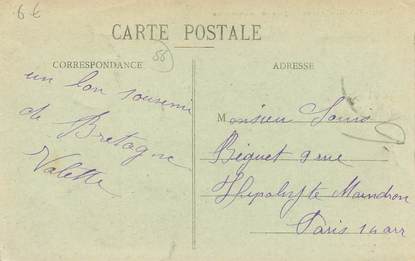 6 €
CARTE POSTALE
56
CORRESPONDANCE
ADRESSE
un bon souvenir
de Bretagne
Valette
Monsieur Louis
Béguet 9 rue
Hipolyte Maindron
Paris 14 arr